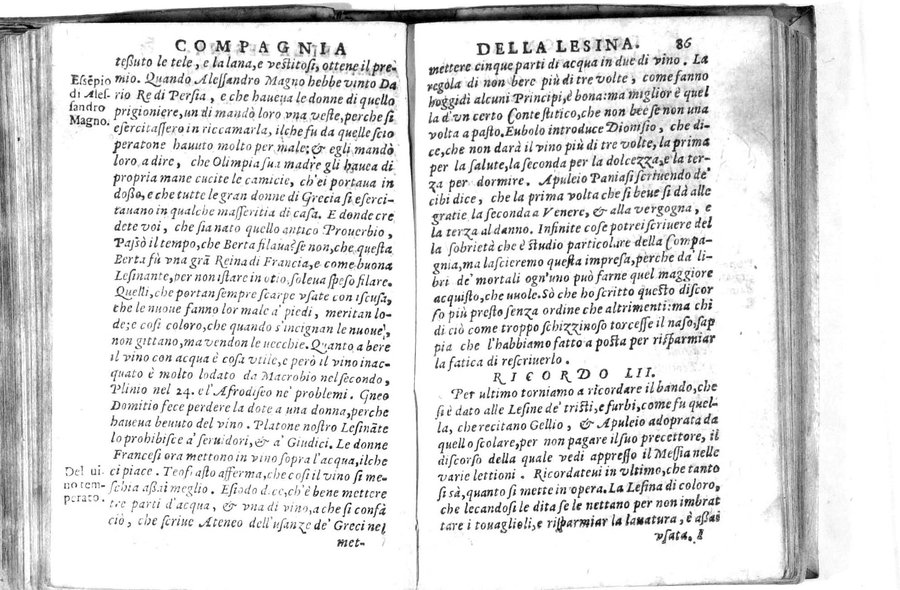 COMPAGNIA
teßuto le tele, e la lana, e vestitosi, ottene il pre-
mio. Quando Alessandro Magno hebbe vinto Da
Essēpio
di Ales-
sandro
Magno.
rio Re di Persia, e che haueua le donne di quello
prigioniere, un dì mandò loro vna veste, perche si
esercitassero in riccamarla, ilche fu da quelle scio
peratone hauuto molto per male; & egli mandò
loro a dire, che Olimpia sua madre gli hauea di
propria mane cucite le camicie, ch'ei portaua in
doßo, e che tutte le gran donne di Grecia si eserci-
tauano in qualche masseritia di casa. E donde cre
dete voi, che sia nato quello antico Prouerbio,
Passò il tempo, che Berta filaua? se non, che questa
Berta fù vna grā Reina di Francia, e come buona
Lesinante, per non istare in otio, soleua speso filare.
Quelli, che portan sempre scarpe vsate con iscusa,
che le nuoue fanno lor male a' piedi, meritan lo-
de; e cosi coloro, che quando s'incignan le nuoue,
non gittano, ma vendon le vecchie. Quanto a bere
il vino con acqua è cosa vtile, e però il vino inac-
quato è molto lodato da Macrobio nel secondo,
Plinio nel 24. e l'Afrodiseo ne' problemi. Gneo
Domitio fece perdere la dote a una donna, perche
haueua beuuto del vino. Platone nostro Lesināte
lo prohibisce a' seruidori, & a' Giudici. Le donne
Francesi ora mettono in vino sopra l'acqua, ilche
Del ui-
no tem-
perato.
ci piace. Teofrasto afferma, che cosi il vino si me-
schia aßai meglio. Esiodo dice, ch'è bene mettere
tre parti d'acqua, & vna di vino, a che si confà
ciò, che scriue Ateneo dell'usanze de' Greci nel
met-
DELLA LESINA. 86
mettere cinque parti di acqua in due di vino. La
regola di non bere più di tre volte, come fanno
hoggidì alcuni Principi, è bona: ma miglior è quel
la d'un certo Conte stitico, che non bee se non una
volta a pasto. Eubolo introduce Dionisio, che di-
ce, che non darà il vino più di tre volte, la prima
per la salute, la seconda per la dolcezza, e la ter-
za per dormire. Apuleio Paniasi scriuendo de'
cibi dice, che la prima volta che si beue si dà alle
gratie, la seconda a Venere, & alla vergogna, e
la terza al danno. Infinite cose potrei scriuere del
la sobrietà che è studio particolare della Compa-
gnia, ma lascieremo questa impresa, perche da' li-
bri de' mortali ogn'uno può farne quel maggiore
acquisto, che uuole. Sò che ho scritto questo discor
so più presto senza ordine che altrimenti: ma chi
di ciò come troppo schizzinoso torcesse il naso, sap
pia che l'habbiamo fatto a posta per risparmiar
la fatica di rescriuerlo.
RICORDO LII.
Per ultimo torniamo a ricordare il bando, che
si è dato alle Lesine de' tristi, e furbi, come fu quel-
la, che recitano Gellio, & Apuleio adoprata da
quello scolare, per non pagare il suo precettore, il
discorso della quale vedi appresso il Messia nelle
varie lettioni. Ricordateui in vltimo, che tanto
si sà, quanto si mette in opera. La Lesina di coloro,
che lecandosi le dita se le nettano per non imbrat
tare i touaglioli, e risparmiar la lauatura, è aßai
vsata.